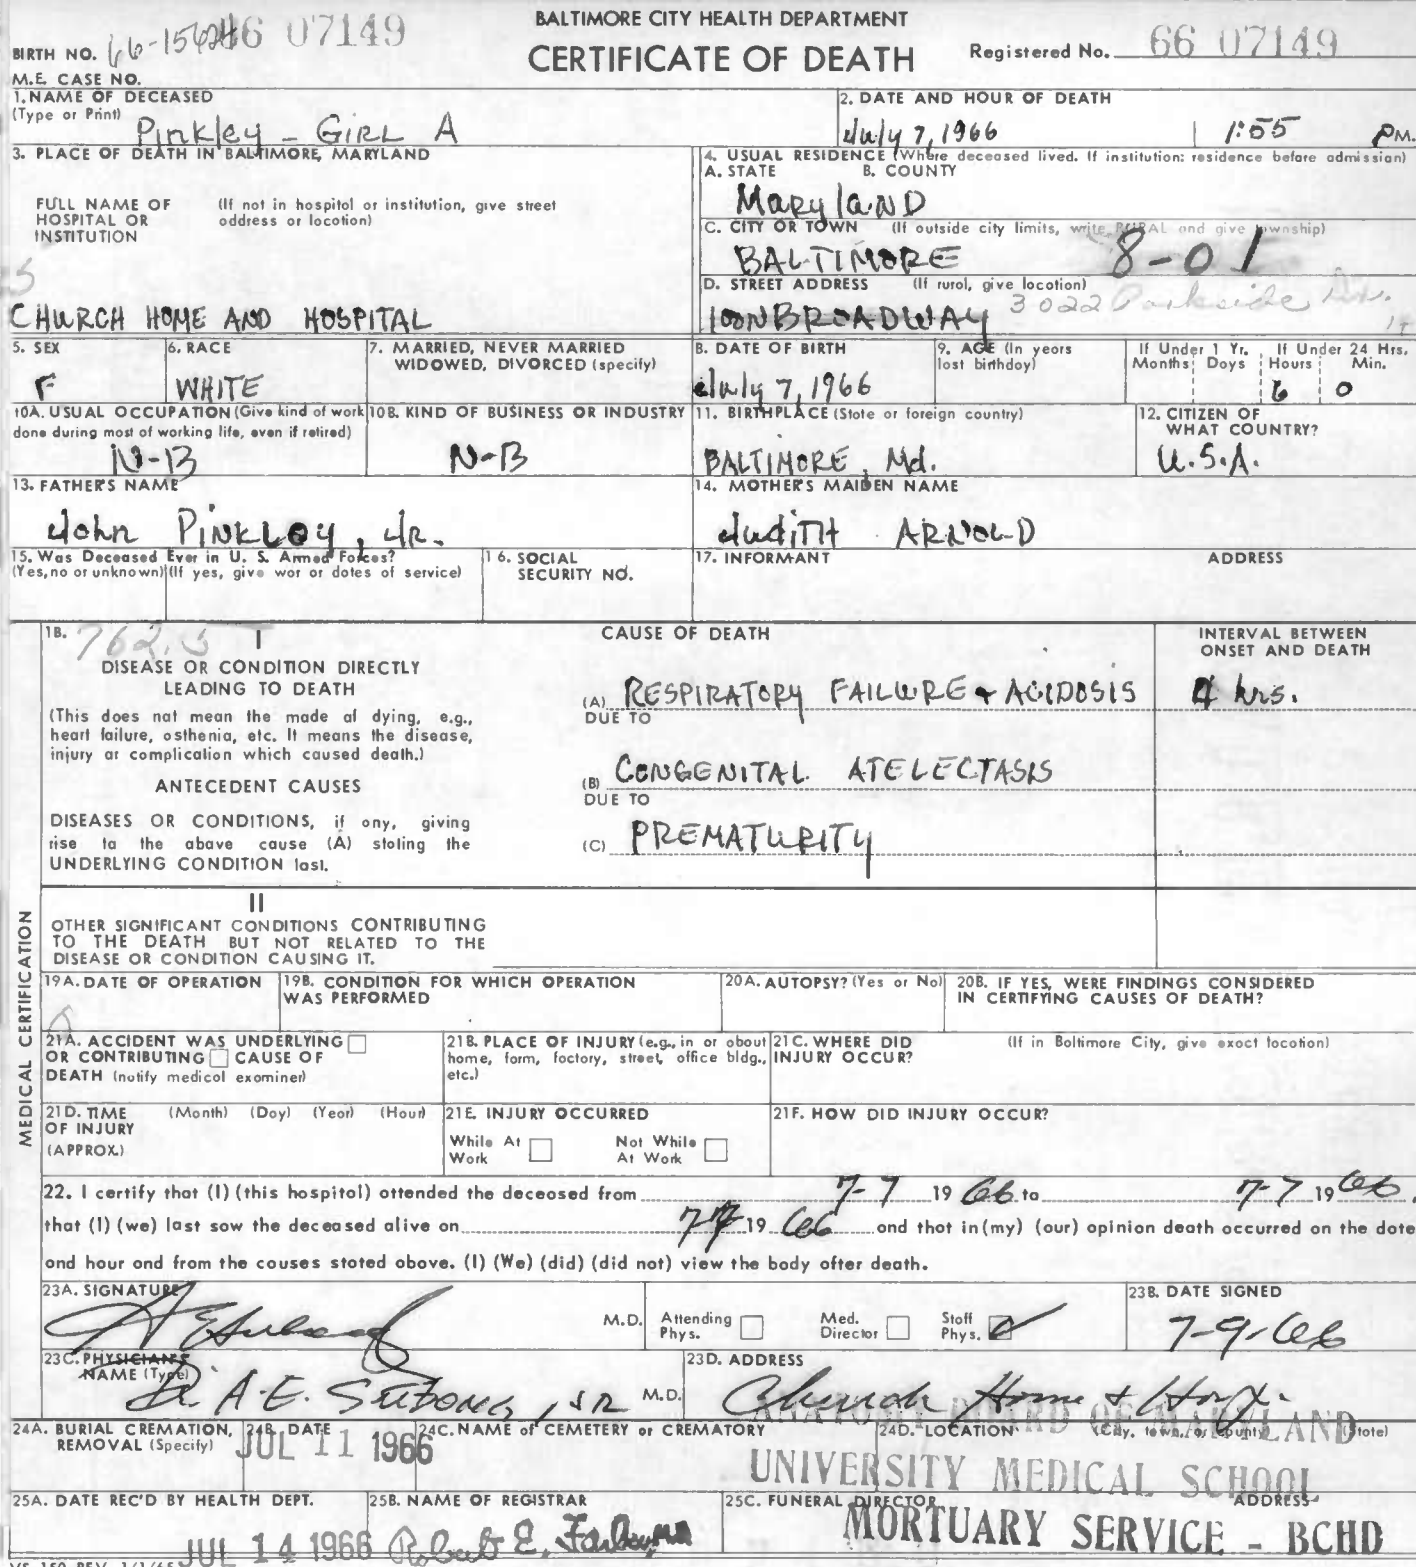 BALTIMORE CITY HEALTH DEPARTMENT
CERTIFICATE OF DEATH
BIRTH NO. 66 07149
Registered No. 66 07149
M.E. CASE NO.
1. NAME OF DECEASED
(Type or Print) Pinkley - GIRL A
2. DATE AND HOUR OF DEATH
July 7, 1966 1:55 PM.
3. PLACE OF DEATH IN BALTIMORE, MARYLAND
FULL NAME OF HOSPITAL OR INSTITUTION
(If not in hospital or institution, give street address or location)
CHURCH HOME AND HOSPITAL
4. USUAL RESIDENCE (Where deceased lived. If institution: residence before admission)
A. STATE B. COUNTY
Maryland
C. CITY OR TOWN (If outside city limits, write RURAL and give township)
BALTIMORE 8-01
D. STREET ADDRESS (If rural, give location)
100 N BROADWAY 3022 Parkside Dr.
5. SEX
F
6. RACE
WHITE
7. MARRIED, NEVER MARRIED
WIDOWED, DIVORCED (specify)
8. DATE OF BIRTH
July 7, 1966
9. AGE (In years
last birthday)
If Under 1 Yr. If Under 24 Hrs.
Months Days Hours Min.
6 0
10A. USUAL OCCUPATION (Give kind of work
done during most of working life, even if retired)
N-B
10B. KIND OF BUSINESS OR INDUSTRY
N-B
11. BIRTHPLACE (State or foreign country)
BALTIMORE, Md.
12. CITIZEN OF
WHAT COUNTRY?
U.S.A.
13. FATHER'S NAME
John PINKLEY, Jr.
14. MOTHER'S MAIDEN NAME
Judith ARNOLD
15. Was Deceased Ever in U. S. Armed Forces?
(Yes, no or unknown) (If yes, give war or dates of service)
16. SOCIAL
SECURITY NO.
17. INFORMANT ADDRESS
MEDICAL CERTIFICATION
18. 762.5 I
CAUSE OF DEATH
INTERVAL BETWEEN
ONSET AND DEATH
DISEASE OR CONDITION DIRECTLY
LEADING TO DEATH
(This does not mean the mode of dying, e.g.,
heart failure, asthenia, etc. It means the disease,
injury or complication which caused death.)
(A) RESPIRATORY FAILURE + ACIDOSIS 4 hrs.
DUE TO
ANTECEDENT CAUSES
(B) CONGENITAL ATELECTASIS
DUE TO
DISEASES OR CONDITIONS, if any, giving
rise to the above cause (A) stating the
UNDERLYING CONDITION last.
(C) PREMATURITY
II
OTHER SIGNIFICANT CONDITIONS CONTRIBUTING
TO THE DEATH BUT NOT RELATED TO THE
DISEASE OR CONDITION CAUSING IT.
19A. DATE OF OPERATION
19B. CONDITION FOR WHICH OPERATION
WAS PERFORMED
20A. AUTOPSY? (Yes or No)
20B. IF YES, WERE FINDINGS CONSIDERED
IN CERTIFYING CAUSES OF DEATH?
21A. ACCIDENT WAS UNDERLYING
OR CONTRIBUTING CAUSE OF
DEATH (notify medical examiner)
21B. PLACE OF INJURY (e.g., in or about
home, farm, factory, street, office bldg.,
etc.)
21C. WHERE DID
INJURY OCCUR?
(If in Baltimore City, give exact location)
21D. TIME (Month) (Day) (Year) (Hour)
OF INJURY
(APPROX.)
21E. INJURY OCCURRED
While At Work Not While At Work
21F. HOW DID INJURY OCCUR?
22. I certify that (I) (this hospital) attended the deceased from 7-7 19 66 to 7-7 19 66,
that (I) (we) last saw the deceased alive on 7-7 19 66 and that in (my) (our) opinion death occurred on the date
and hour and from the causes stated above. (I) (We) (did) (did not) view the body after death.
23A. SIGNATURE
M.D. Attending Phys. Med. Director Staff Phys.
23B. DATE SIGNED
7-9-66
23C. PHYSICIAN'S
NAME (Type) Dr. A. E. , JR M.D.
23D. ADDRESS
Church Home & Hosp.
24A. BURIAL CREMATION,
REMOVAL (Specify)
24B. DATE
JUL 11 1966
24C. NAME of CEMETERY or CREMATORY
24D. LOCATION (City, town, or county) (State)
ANATOMY BOARD OF MARYLAND
UNIVERSITY MEDICAL SCHOOL
25A. DATE REC'D BY HEALTH DEPT.
JUL 14 1966
25B. NAME OF REGISTRAR
Robert E. Farber, MD
25C. FUNERAL DIRECTOR ADDRESS
MORTUARY SERVICE - BCHD
VS 150 REV. 1/1/65